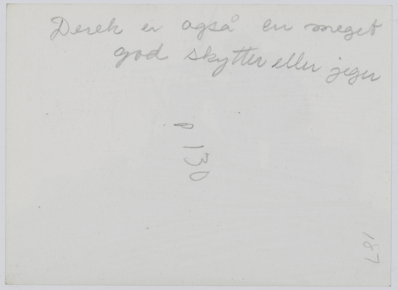 Derek er også en meget
god skytter eller jeger
p 130
187